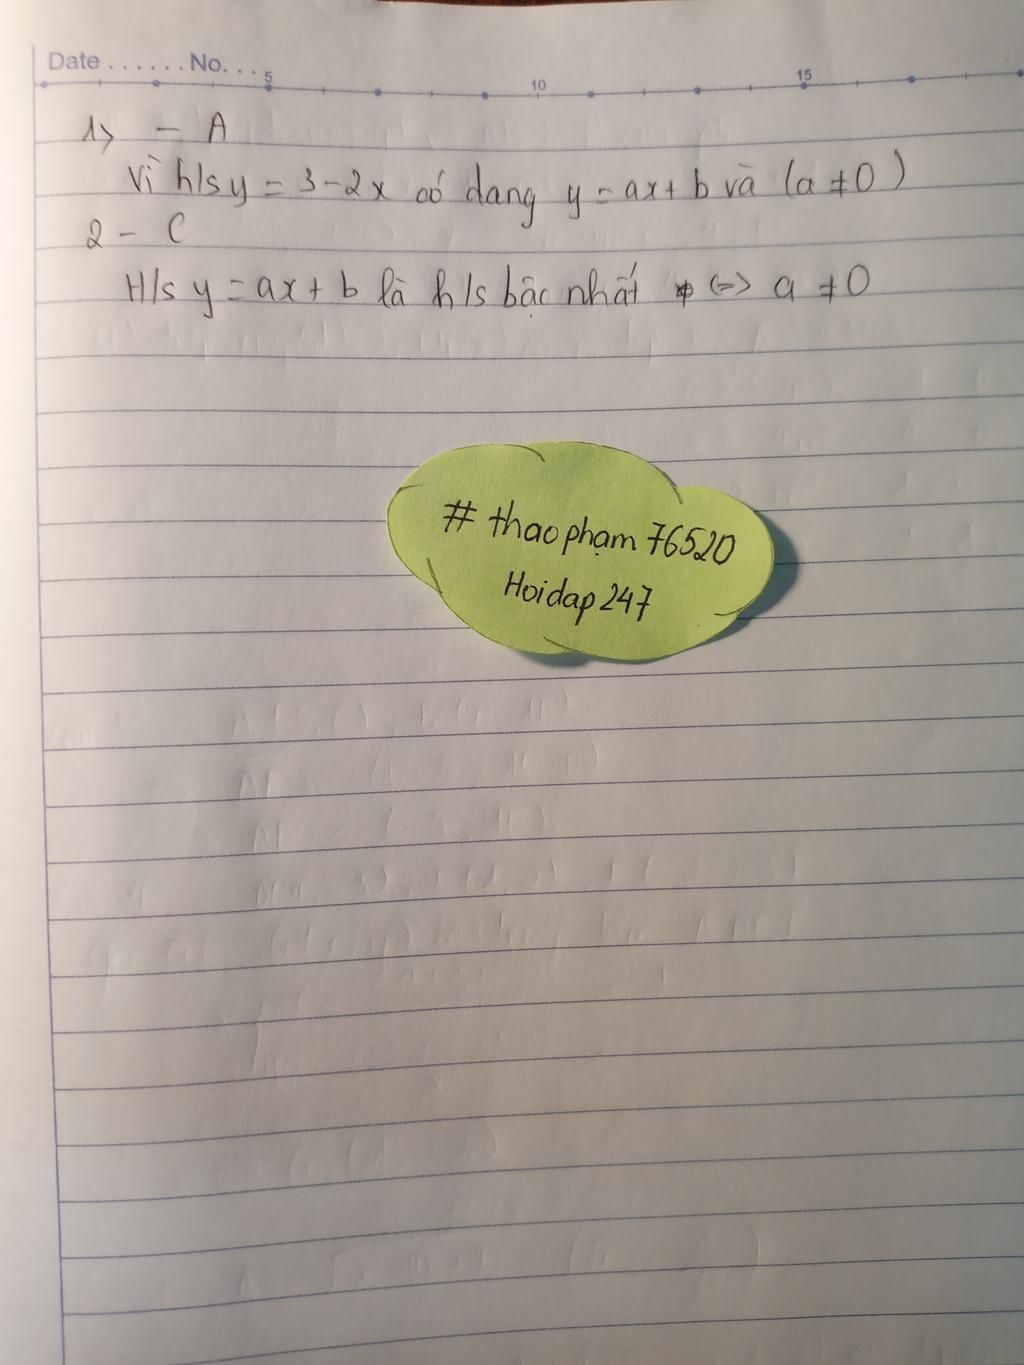 Date ...... No. ...
5 10 15
1> - A
Vì h/s y = 3 - 2x có dạng y = ax + b và (a ≠ 0)
2 - C
H/s y = ax + b là h/s bậc nhất <=> a ≠ 0
# thaophạm76520
Hoidap247